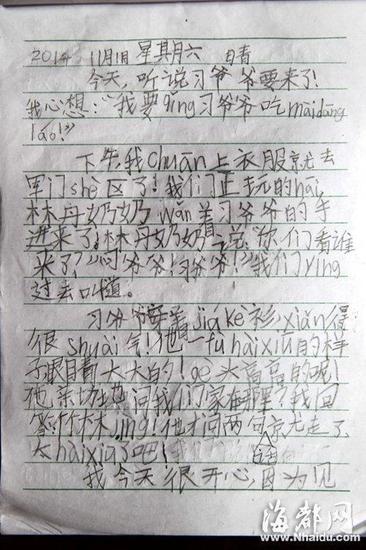 2014 11月1日 星期六 晴
今天，听说习爷爷要来了！
我心想：“我要qǐng习爷爷吃màidāng
láo！”
下午我chuān上衣服就去
军门shè区了！我们正玩的hāi，
林丹奶奶wǎn羊习爷爷的手
进来了，林丹奶奶说：“你们看谁
来了”，“习爷爷！习爷爷！”我们yíng
过去叫
习爷爷穿着jiá kè衫xiǎn得
很shuài气！他一fù hài xiū的样
子眼睛大大的！gè头高高的呢！
他亲切地问我们家在哪里？我回
答竹林jìng！他才问两句话就走了
太hài xiū了吧！
我今天很开心，因为见
海都网
www.Nhaidu.com